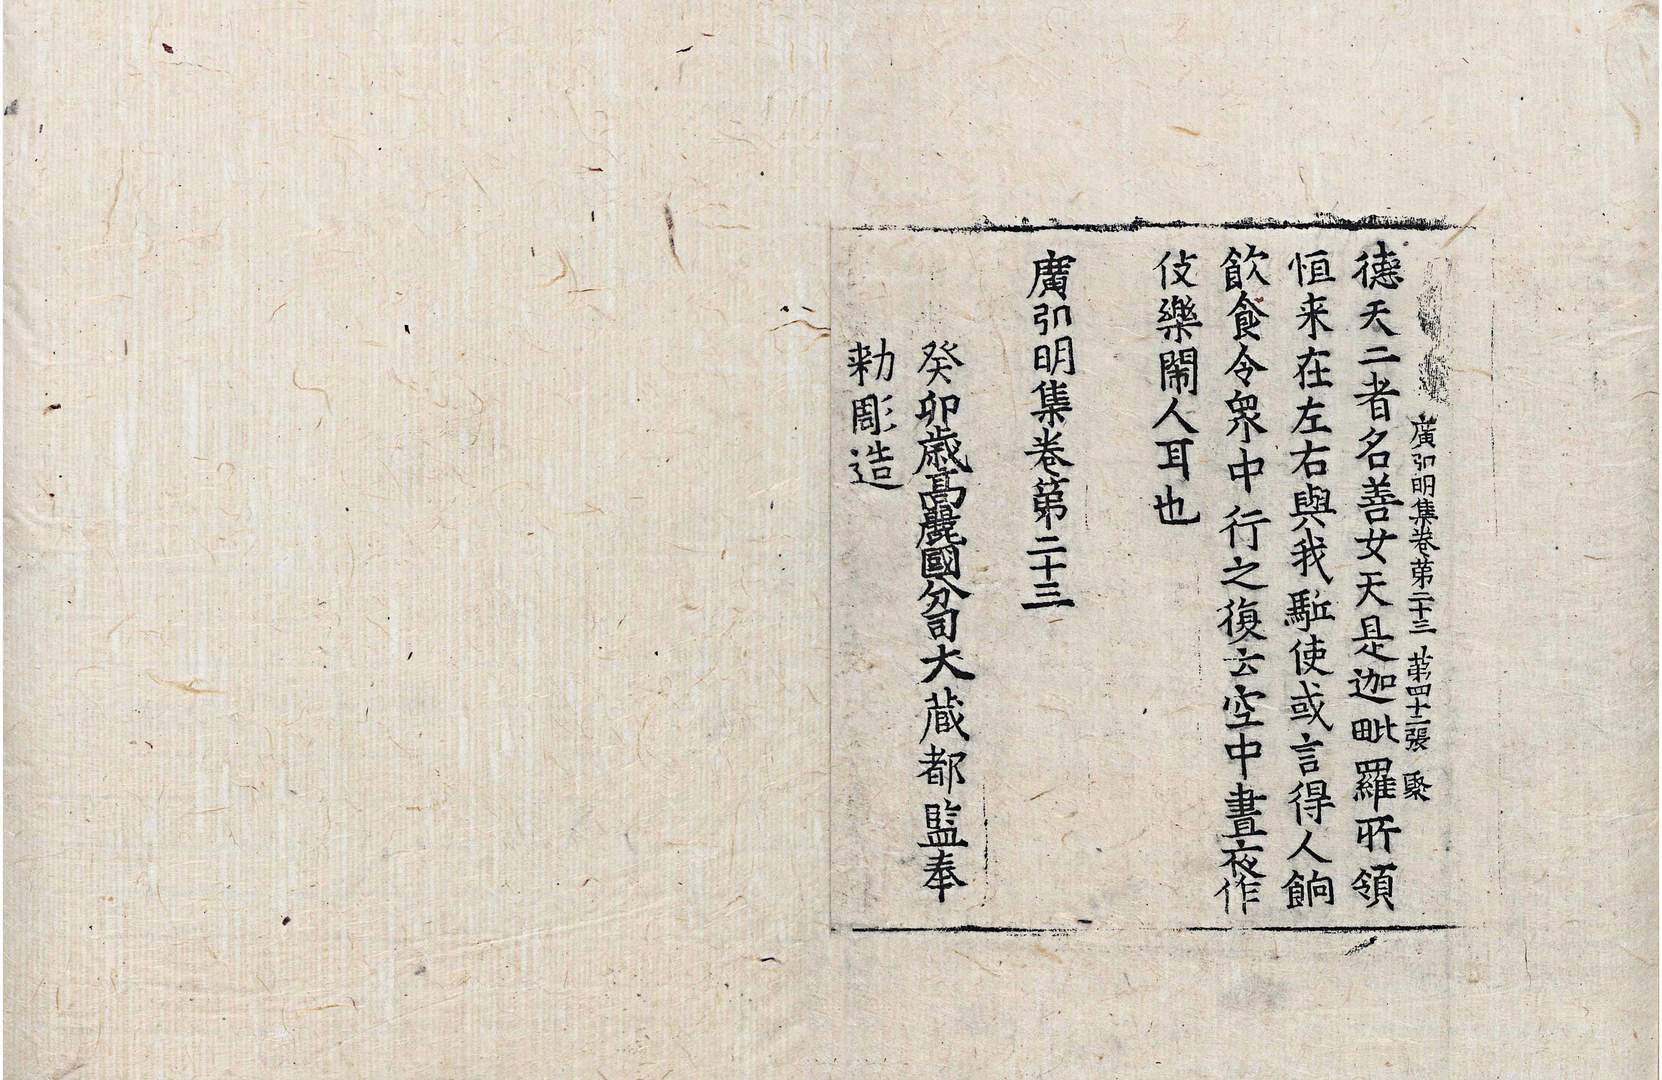 廣弘明集卷第二十三 第四十二張 聚
德天二者名善女天是迦毗羅所領
恒来在左右與我駈使或言得人餉
飲食令衆中行之復云空中晝夜作
伎樂閙人耳也
廣弘明集卷第二十三
癸卯歲高麗國分司大藏都監奉
勑彫造